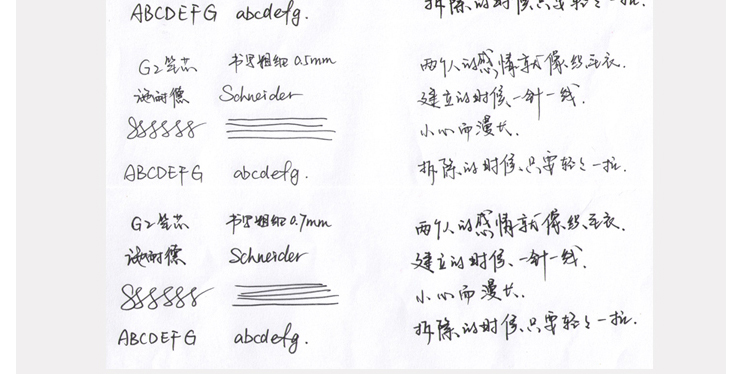 ABCDEFG abcdefg. 拆除的时候,只要轻轻一拉.
G2笔芯 书写粗细0.5mm 两个人的感情就像织毛衣.
施耐德 Schneider 建立的时候、一针一线.
小心而漫长.
ABCDEFG abcdefg. 拆除的时候、只要轻轻一拉.
G2笔芯 书写粗细0.7mm 两个人的感情就像织毛衣.
施耐德 Schneider 建立的时候、一针一线.
小心而漫长.
ABCDEFG abcdefg. 拆除的时候、只要轻轻一拉.